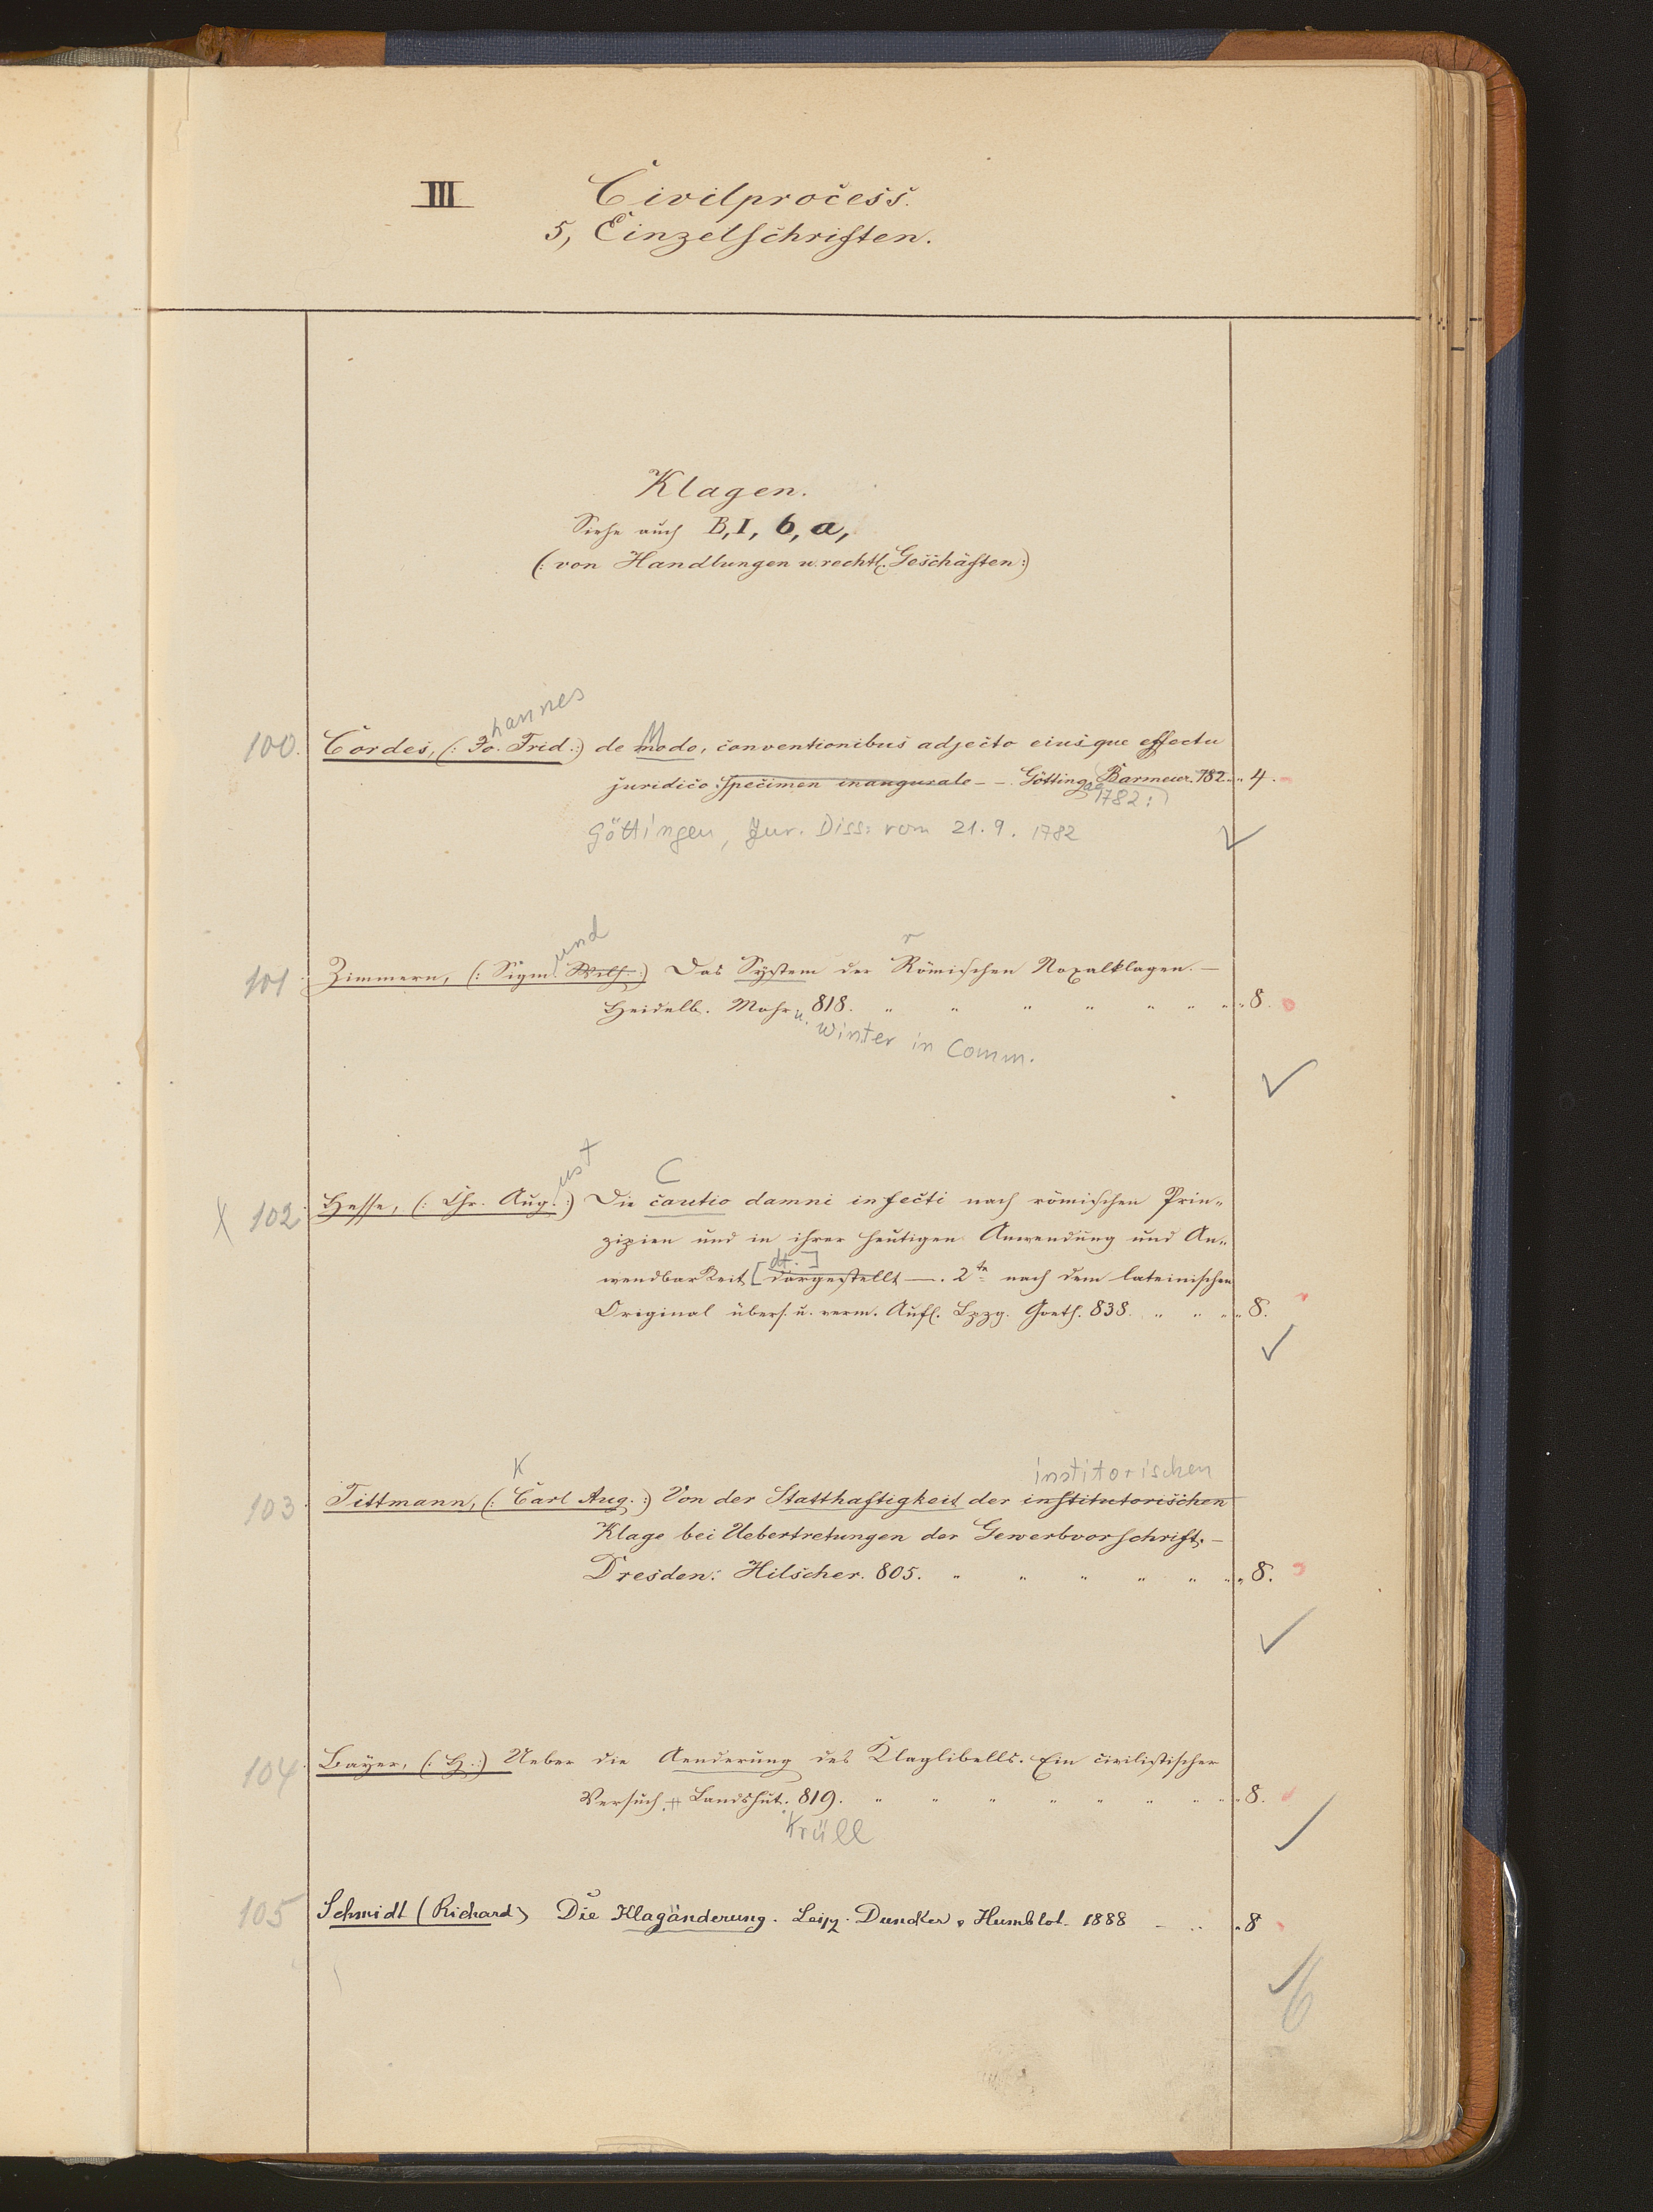 III Civilprocess.
5, Einzelschriften.
Klagen.
Siehe auch B, I, 6, a,
(: von Handlungen u. rechtl. Geschäften :)
hannes
100. Cordes, (: Jo. Frid. :) de modo, conventionibus adjecto eiusque effectu
M
juridico. specimen inaugurale — — Götting. Barmeier. 782. " 4.
ae 1782 :)
Göttingen, Jur. Diss. vom 21.9.1782
und r
101. Zimmern, (: Sigm. Wilh. :) Das System der Römischen Noxalklagen. —
Heidelb. Mohr 818. " " " " " " " 8.
u. Winter in Comm.
ust C
X 102. Hesse, (: Chr. Aug. :) Die cautio damni infecti nach römischen Prin-
zipien und in ihrer heutigen Anwendung und An-
dt. ]
wendbarkeit [dargestellt —. 2te nach dem lateinischen
Original übers. u. verm. Aufl. Lpzg. Goeth. 838. " " " 8.
K institorischen
103. Tittmann, (: Carl Aug. :) Von der Statthaftigkeit der institutorischen
Klage bei Uebertretungen der Gewerbvorschrift. —
Dresden. Hilscher. 805. " " " " " " 8.
104. Bayer, (: H. :) Ueber die Aenderung des Klaglibells. Ein civilistischer
Versuch. Landshut. 819. " " " " " " " 8.
Krüll
105 Schmidt (Richard) Die Klagänderung. Leipz. Duncker & Humblot. 1888 — " " 8
6